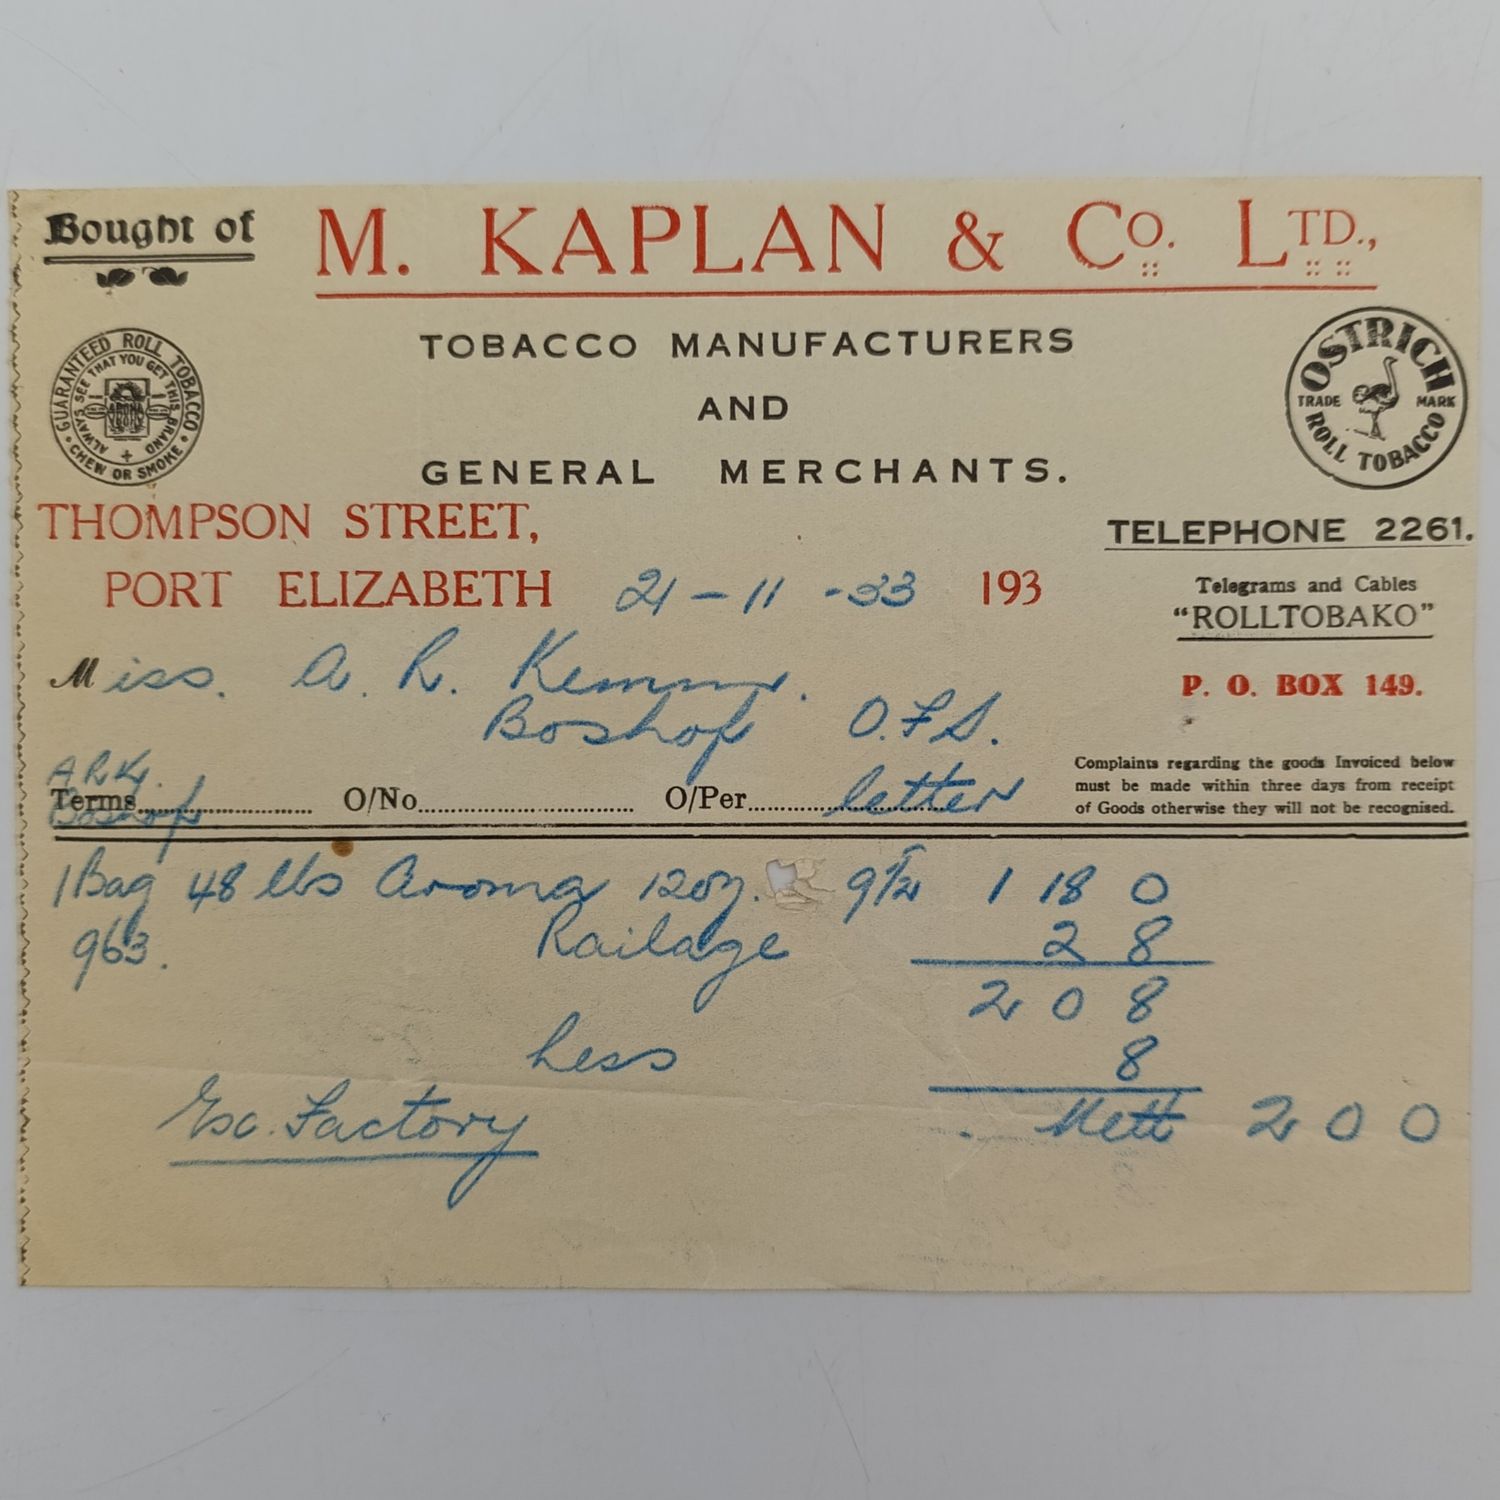 Bought of M. KAPLAN & Co. LTD.,
GUARANTEED ROLL TOBACCO
ALWAYS SEE THAT YOU GET THIS BRAND
AROMA
CHEW OR SMOKE
TOBACCO MANUFACTURERS
AND
GENERAL MERCHANTS.
OSTRICH
TRADE MARK
ROLL TOBACCO
THOMPSON STREET,
PORT ELIZABETH 21-11-33 193
TELEPHONE 2261.
Telegrams and Cables
"ROLLTOBAKO"
P. O. BOX 149.
Miss. A. R. Kemm.
Boshof O.F.S.
Complaints regarding the goods Invoiced below
must be made within three days from receipt
of Goods otherwise they will not be recognised.
A R K.
Terms O/No. O/Per letter
Boshof
1 Bag 48 lbs Aroma 12oz. 9½ 1 18 0
963. Railage 2 8
2 0 8
Less 8
Nett 2 0 0
Esc. Factory